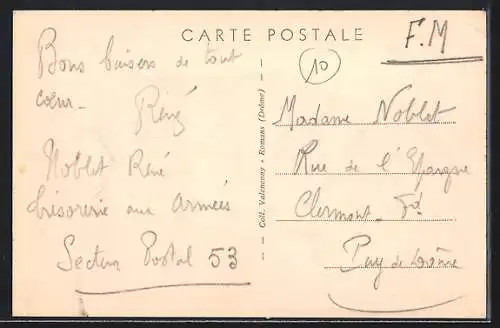 CARTE POSTALE
F.M
10
Bons baisers de tout
cœur-
René
Noblet René
trésorerie aux Armées
Secteur Postal 53
Coll. Valernay - Romans (Drôme)
Madame Noblet
Rue de l'Epargne
Clermont-Fd
Puy de Dôme